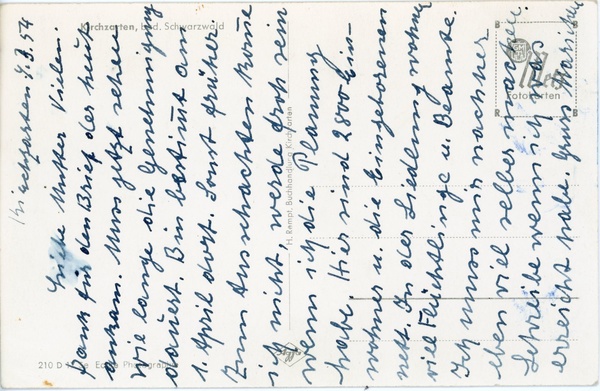 Kirchzarten, bad. Schwarzwald
Kirchzarten 9.3.54
Liebe Mutter Vielen
Dank für den Brief der heut
ankam. Muss jetzt sehen
wie lange die Genehmigung
dauert. Bin bestimt am
1. April dort. Sonst früher.
Zum Ausschachten komme
ich nicht, werde froh sein
wenn ich die Planung
habe. Hier sind 2800 Ein-
wohner u. die Eingeborenen
nett. In der Siedlung wohnen
viel Flüchtlinge u. Beamte.
Ich muss mir nachher
eben viel selber machen.
Schreibe wenn ich was
erreicht habe. Gruss
H. Rempt, Buchhandlung Kirchzarten
Fotokarten
210 D